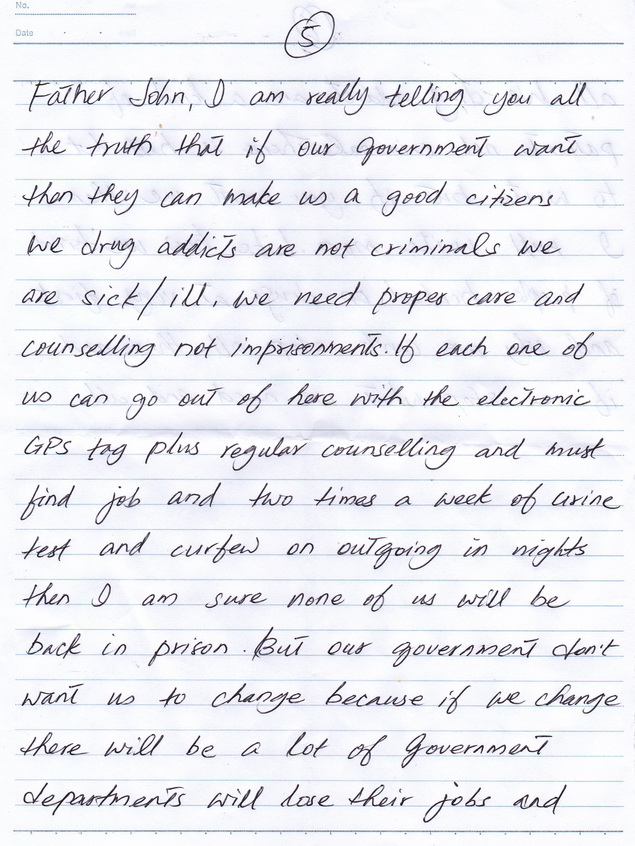 No.
Date
5
Father John, I am really telling you all
the truth that if our government want
then they can make us a good citizens
we drug addicts are not criminals we
are sick/ill. we need proper care and
counselling not imprisonments. If each one of
us can go out of here with the electronic
GPS tag plus regular counselling and must
find job and two times a week of urine
test and curfew on outgoing in nights
then I am sure none of us will be
back in prison. But our government don't
want us to change because if we change
there will be a lot of Government
departments will lose their jobs and